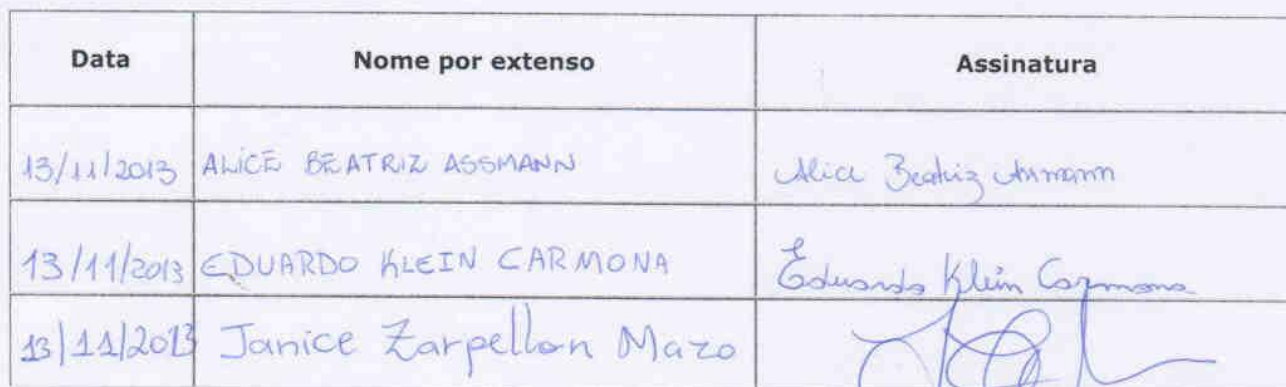 Data Nome por extenso Assinatura
13/11/2013 ALICE BEATRIZ ASSMANN Alice Beatriz Assmann
13/11/2013 EDUARDO KLEIN CARMONA Eduardo Klein Carmona
13/11/2013 Janice Zarpellon Mazo